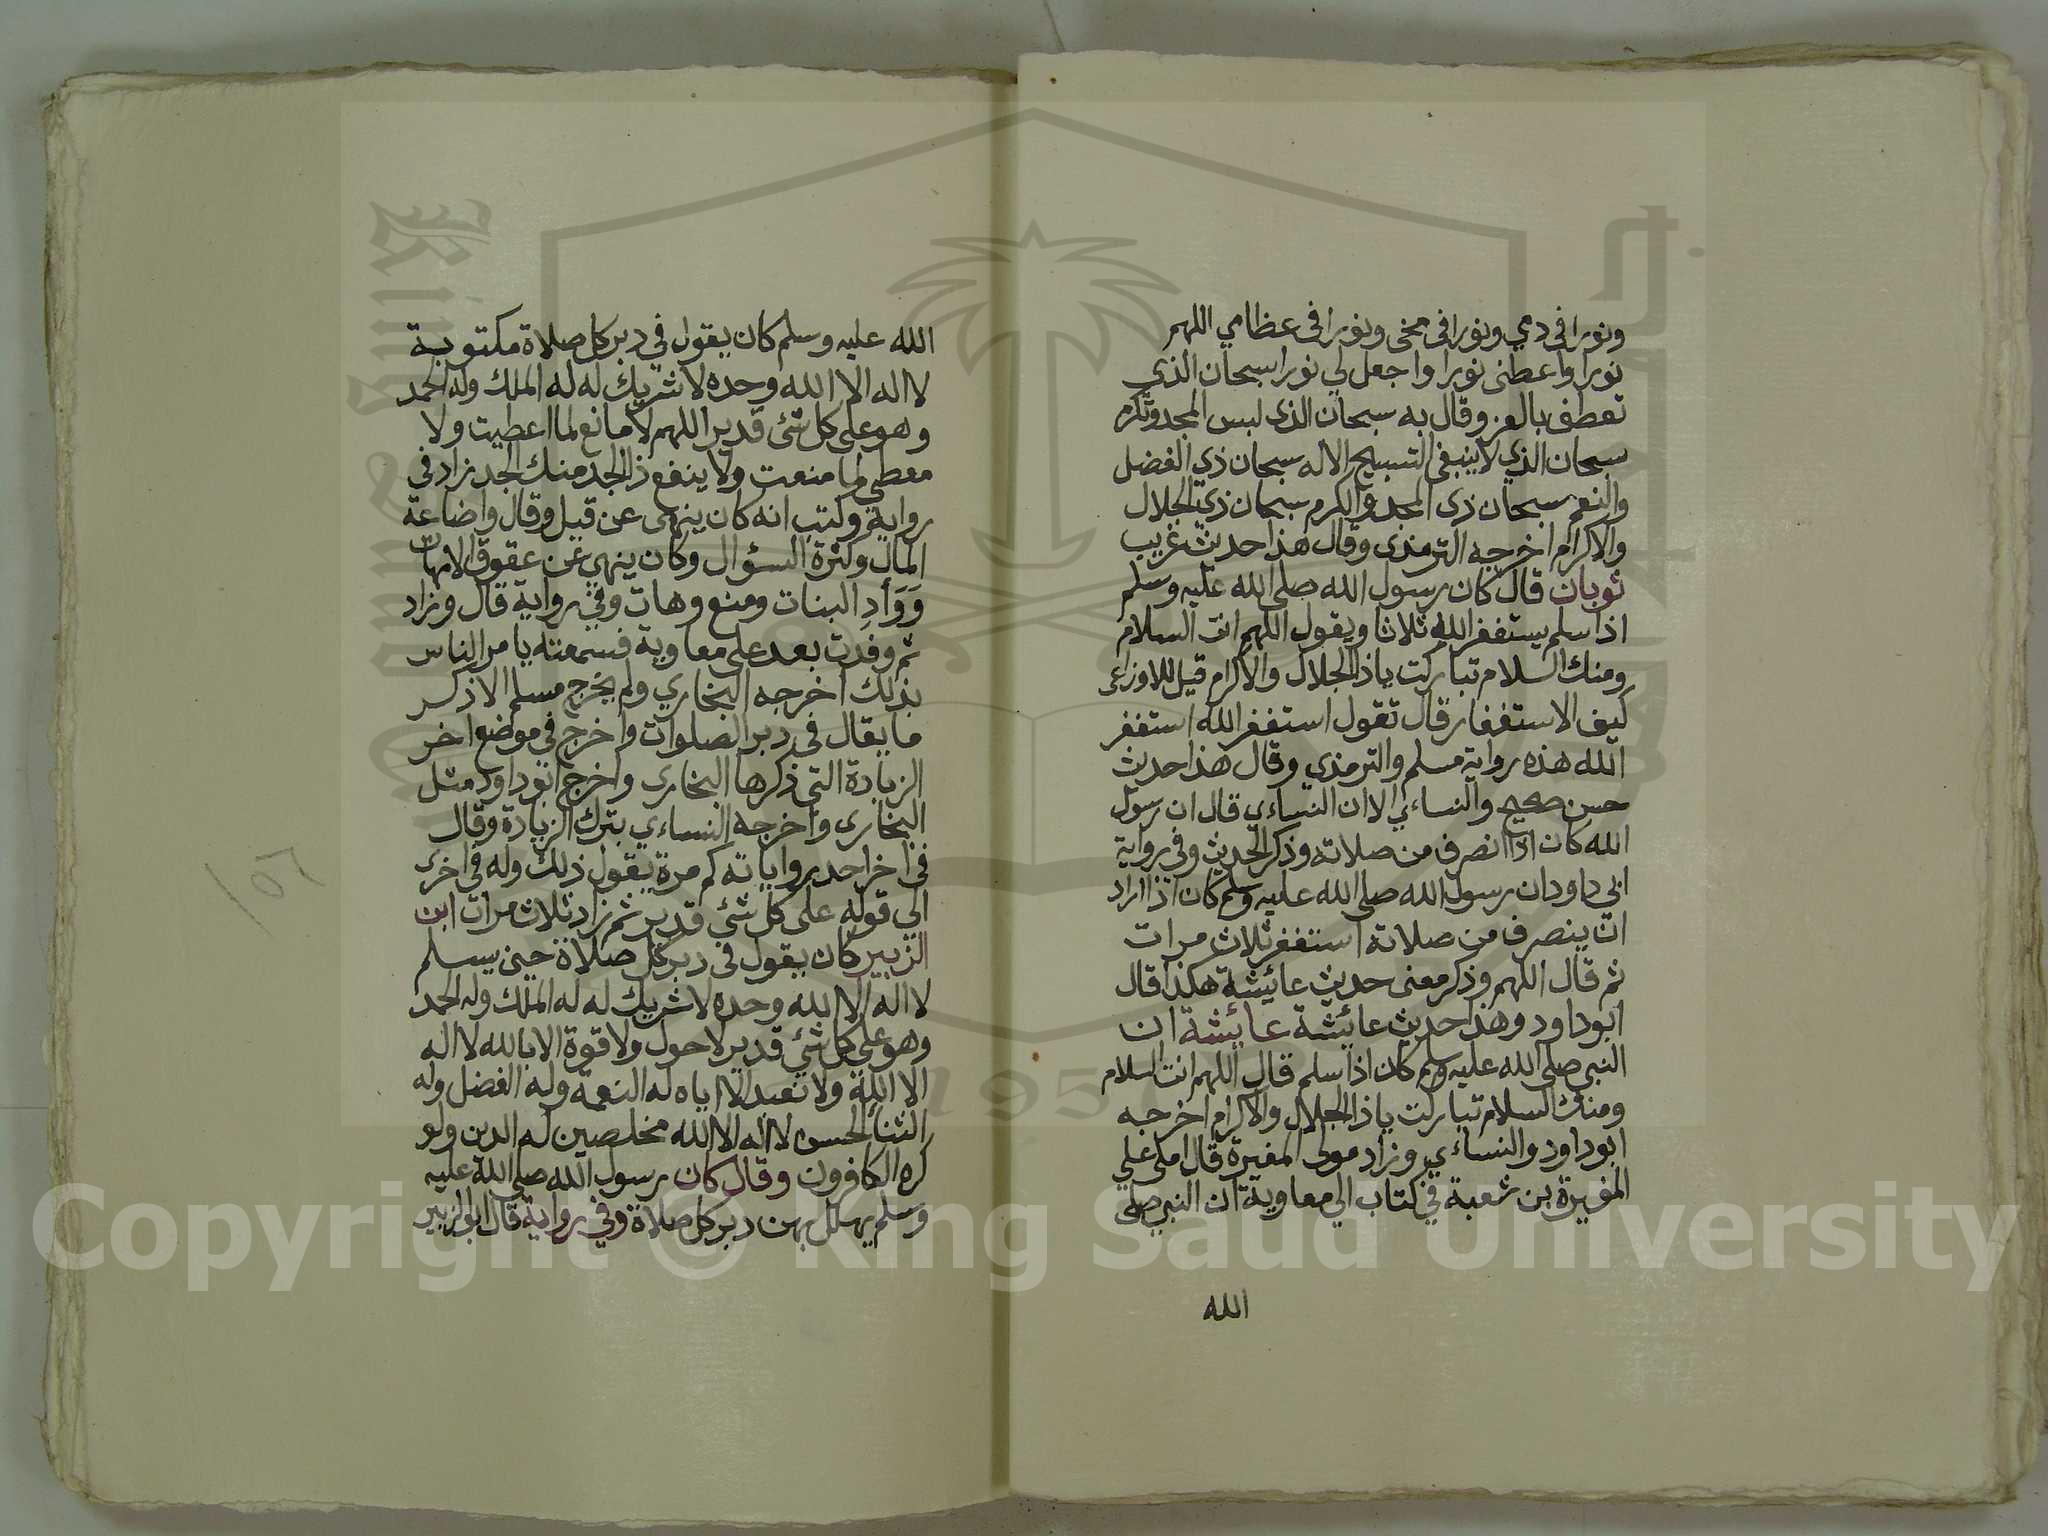 ونورا في دمي ونورا في مخي ونورا في عظامي اللهم
نورا واعطني نورا واجعل لي نورا سبحان الذي
تعطف بالعز وقال به سبحان الذي لبس المجد وتكرم
سبحان الذي لا ينبغي التسبيح الا له سبحان ذي الفضل
والنعم سبحان ذي المجد والكرم سبحان ذي الجلال
والاكرام اخرجه الترمذي وقال هذا حديث غريب
ثوبان قال كان رسول الله صلى الله عليه وسلم
اذا سلم يستغفر الله ثلاثا ويقول اللهم انت السلام
ومنك السلام تباركت يا ذا الجلال والاكرام قيل للاوزاعي
كيف الاستغفار قال تقول استغفر الله استغفر
الله هذه رواية مسلم والترمذي وقال هذا حديث
حسن صحيح والنساءي الا ان النساءي قال ان رسول
الله كان اذا انصرف من صلاته وذكر الحديث وفي رواية
ابي داود ان رسول الله صلى الله عليه وسلم كان اذا اراد
ان ينصرف من صلاته استغفر ثلاث مرات
ثم قال اللهم وذكر معنى حديث عائيشة هكذا قال
ابوداود وهذا حديث عائيشة عائيشة ان
النبي صلى الله عليه وسلم كان اذا سلم قال اللهم انت السلام
ومنك السلام تباركت يا ذا الجلال والاكرام اخرجه
ابوداود والنساءي وزاد مولى المغيرة قال املى علي
المغيرة بن شعبة في كتاب الي معاوية ان النبي صلى
الله
الله عليه وسلم كان يقول في دبر كل صلاة مكتوبة
لا اله الا الله وحده لا شريك له له الملك وله الحمد
وهو على كل شئ قدير اللهم لا مانع لما اعطيت ولا
معطي لما منعت ولا ينفع ذا الجد منك الجد زاد في
رواية وكتب انه كان ينهى عن قيل وقال واضاعة
المال وكثرة السؤال وكان ينهى عن عقوق الامهات
وَوَأدِ البنات ومنع وهات وفي رواية قال وزاد
ثم وفدت بعد على معاوية فسمعته يامر الناس
بذلك اخرجه البخاري ولم يخرج مسلم الا ذكر
ما يقال في دبر الصلوات واخرج في موضع اخر
الزيادة التي ذكرها البخاري واخرج ابوداود مثل
البخاري واخرجه النساءي بترك الزيادة وقال
في اخر احد رواياته كم مرة يقول ذلك وله في اخرى
الي قوله على كل شئ قدير ثم زاد ثلاث مرات ابن
الزبير كان يقول في دبر كل صلاة حين يسلم
لا اله الا الله وحده لا شريك له له الملك وله الحمد
وهو على كل شئ قدير لا حول ولا قوة الا بالله لا اله
الا الله ولا نعبد الا اياه له النعمة وله الفضل وله
الثناء الحسن لا اله الا الله مخلصين له الدين ولو
كره الكافرون وقال كان رسول الله صلى الله عليه
وسلم يهلل بهن دبر كل صلاة وفي رواية قال ابو الزبير
١٥٦
Copyright © King Saud University
1957